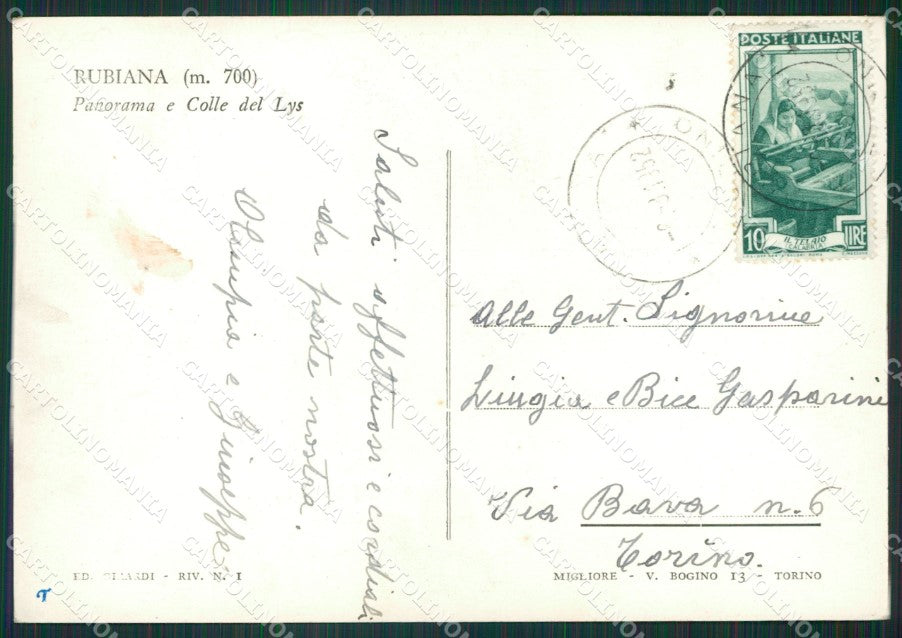 RUBIANA (m. 700)
Panorama e Colle del Lys
Saluti affettuosi e cordiali
da parte nostra.
Olimpia e Giuseppe
POSTE ITALIANE
10 LIRE
IL TELAIO
CALABRIA
Alle Gent. Signorine
Luigia e Bice Gasparini
Via Bava n. 6
Torino.
RIV. N. 1
MIGLIORE - V. BOGINO 13 - TORINO
CARTOLINOMANIA